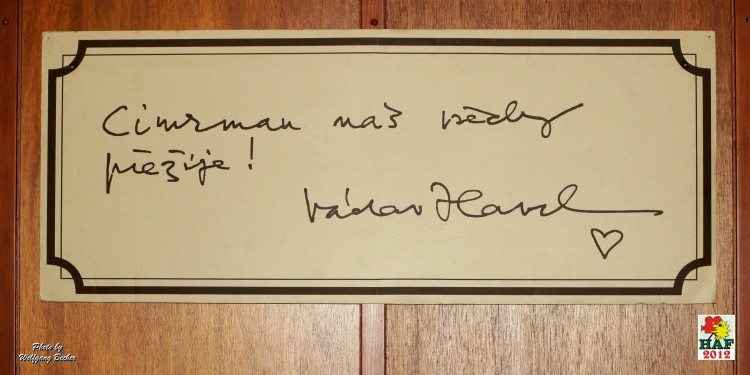 Cimrman nás všechny
přežije!
Václav Havel
Photo by
Wolfgang Becker
HAF
2012